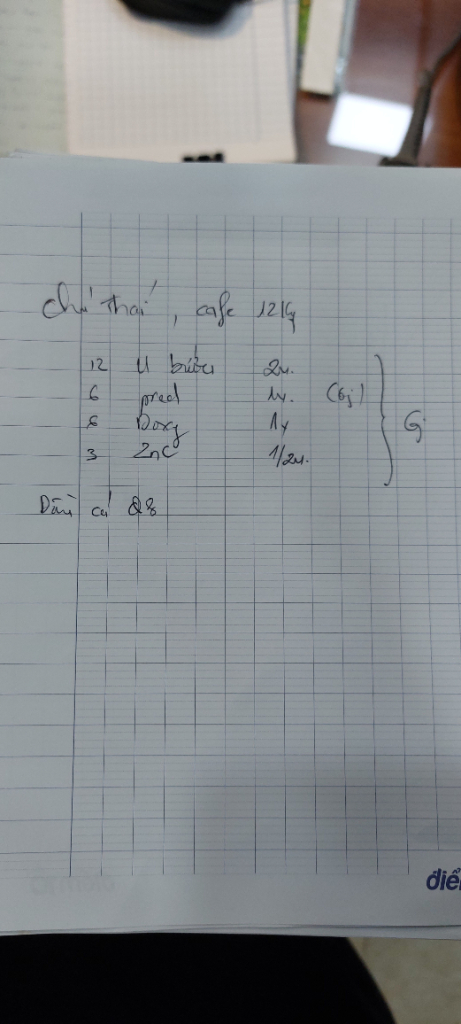 Chú Thái, cafe 12kg
12 U bướu 2v.
6 pred 1v. (6j)
6 Doxy 1v
3 Znc 1/2v.
G
Dầu cá Q8
điể